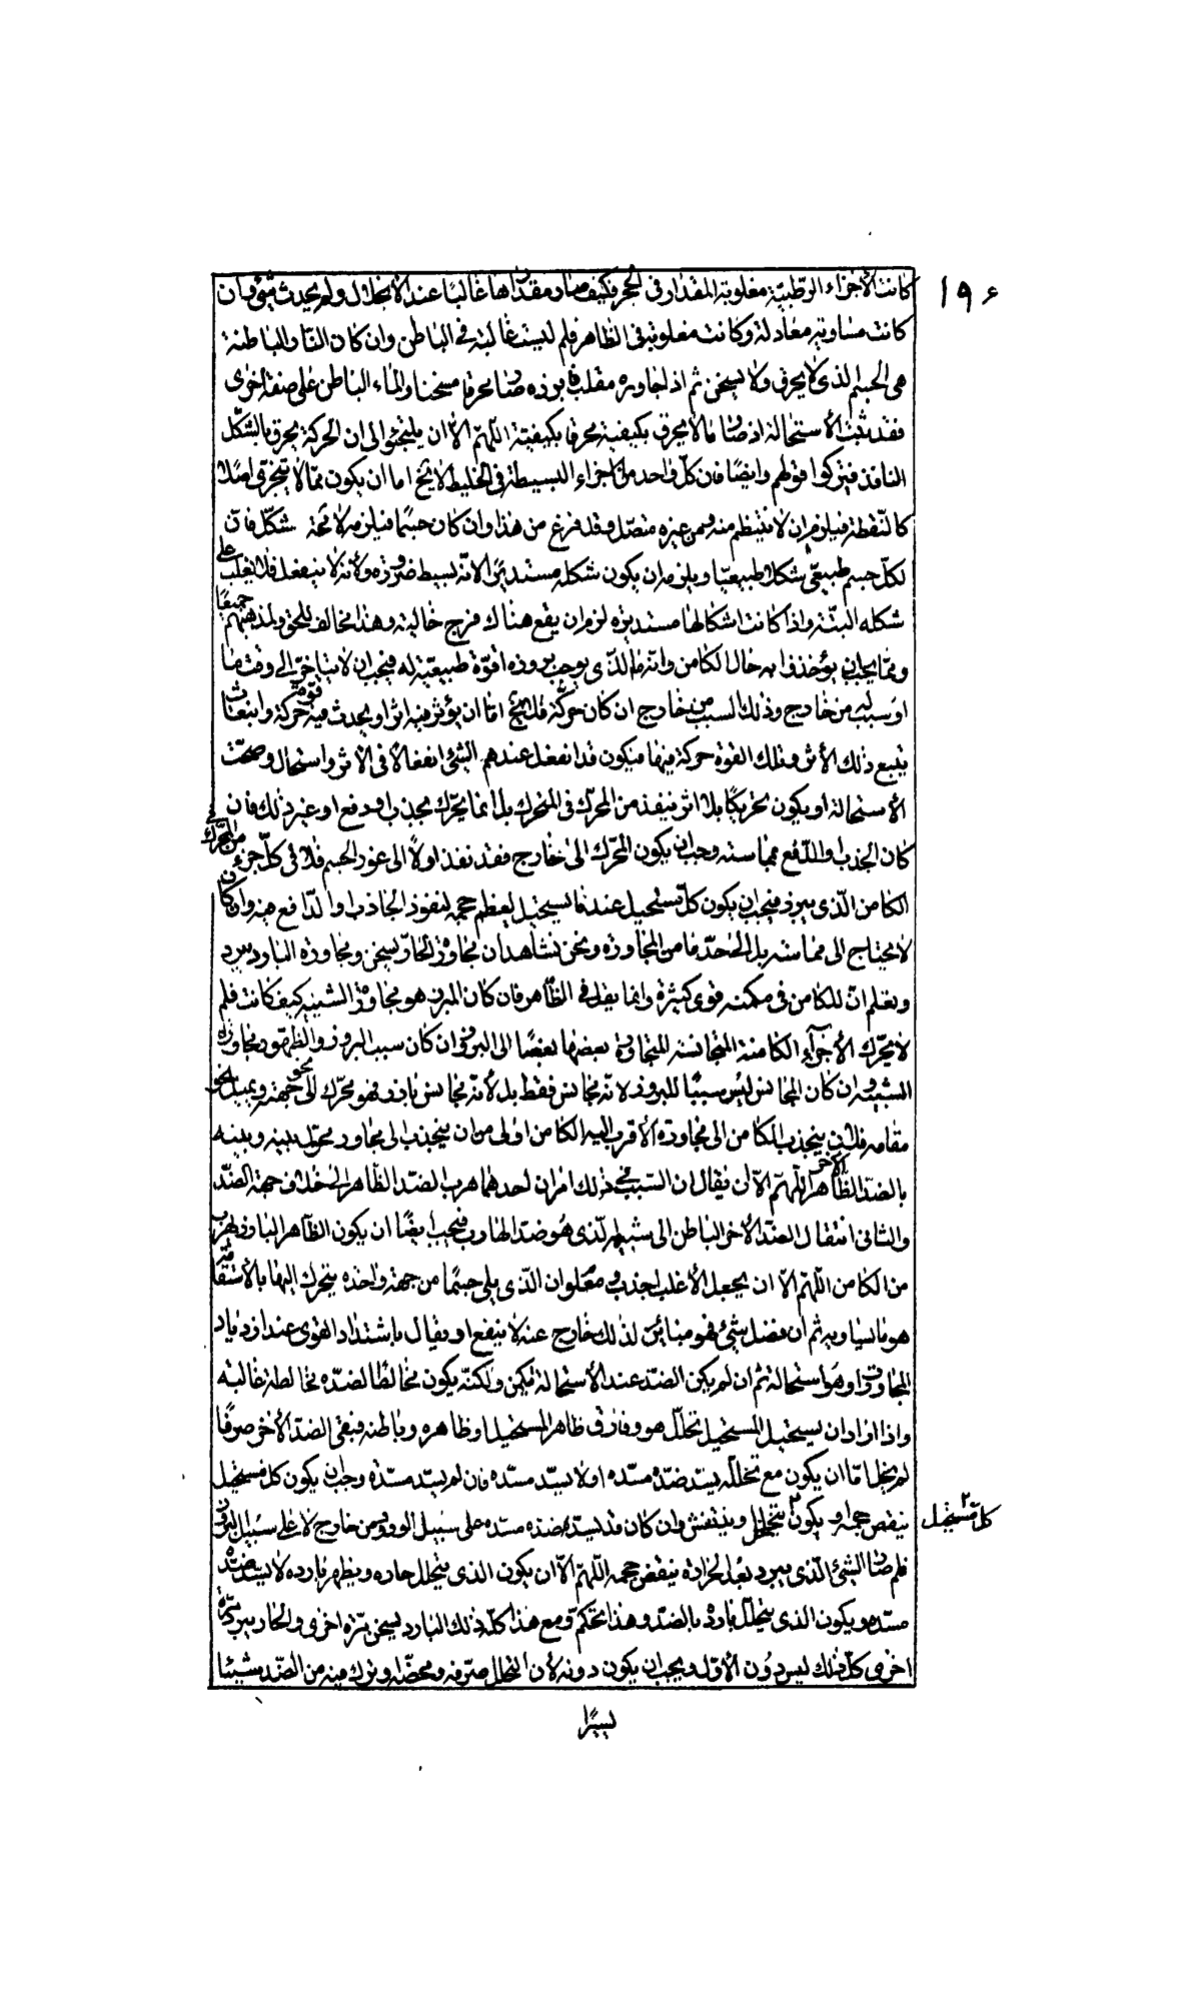 ١٩٦
كانت الأجزاء الرطبية مغلوبة المقدار في الحجر فكيف صار مقدارها غالبا عند الانحلال ولم يحدث شيء وان
كانت مساوية معادلة وكانت مغلوبة في الظاهر فلم ليست غالبة في الباطن وان كان النار الباطنة
هي الجسم الذي لا يحرق ولا يسخن ثم اذا جاوره مقلب بروزه صار محرقا مسخنا والماء الباطن على صفة اخرى
فقد ثبت الاستحالة اذ صار ما لا يحرق بكيفية محرقا بكيفية اللهم الا ان يلتجئوا الى ان الحركة يحرق بالشكل
النافذ فيتركوا قولهم وايضا فان كل واحد من الاجزاء البسيطة في الخليط لا يخ اما ان يكون مما لا يتجزى اصلا
كالنقطة فيلزم ان لا ينتظم منه ومن غيره متصل وقد فرغ من هذا وان كان جسما فيلزمه لا محة شكل فان
لكل جسم طبيعي شكلا طبيعيا ويلزم ان يكون شكله مستديرا لانه بسيط ضرورة ولانه لا ينفعل فلا يغلب على
شكله البتة واذا كانت اشكالها مستديرة لزم ان يقع هناك فرج خالية وهذا مخالف للحق ولمذهبهم جميعا
ومما يجب ان يؤخذوا به حال الكامن وانه ما الذي يوجب بروزه اقوة طبيعية له فيجب ان لا يتاخر الى وقت ما
او سبب من خارج وذلك السبب من خارج ان كان حركة فلا يخ اما ان يؤثر فيه اثرا ويحدث فيه قوة حركة وانبعاث
يتبع ذلك الأثر وتلك القوة حركة فيها فيكون قد انفعل عندهم الشيء انفعالا في الاثر واستحال وصحت
الاستحالة او يكون تحريكا بلا اثر ينفذ من المحرك في المتحرك بل انما يحرك بجذب او دفع او غير ذلك فان
كان الجذب والدفع مماسة وجب ان يكون المحرك الى خارج فقد نفذ اولا الى غور الجسم فلاقى كل جزء من المحرك
الكامن الذي يبرز فيجب ان يكون كل مستحيل عند ما يستحيل ليعظم حجمه لنفوذ الجاذب او الدافع فيه وان كان
لا يحتاج الى مماسة بل الى حد ما من المجاورة ونحن نشاهد ان مجاورة الحار يسخن ومجاورة البارد يبرد
ونعلم ان للكامن في مكمنه قوى كثيرة وانما يقل في الظاهر فان كان المبرز هو مجاورة الشبيه كيف كانت فلم
لا يحرك الأجزاء الكامنة المتجانسة المتجاورة بعضها بعضا الى البروز وان كان سبب البروز والظهور مجاورة
الشبيه وان كان المجانس ليس سببا للبروز لانه مجانس فقط بل لأنه مجانس بارز فهو محرك الى نحو جهته ويميل نحو
مقامه فلان ينجذب الكامن الى مجاورة الأقرب اليه الكامن اولى من ان ينجذب الى مجاور محول بينه وبينه
بالضد الظاهر الآخر اللهم الا ان يقال ان السبب في ذلك امران احدهما هرب الضد الظاهر الى خلاف جهة الضد
والثاني انتقال الضد الآخر الباطن الى شبيهه الذي هو ضد الهارب فيجب ايضا ان يكون الظاهر البارز يهرب
من الكامن اللهم الا ان يجعل الأغلب اجذب ومعلوم ان الذي يلي جسما من جهة واحدة يتحرك اليها بالاستقامة
هو ما يساويه ثم ان فضل شيء فهو مباين لذلك خارج عنه لا ينفع او يقال باشتداد القوى عند ازدياد
المجاورة او هو استحالة ثم ان لم يكن الضد عند الاستحالة يكمن ولكنه يكون مخالطا لضده مخالطة غالبة
واذا اراد ان يستحيل المستحيل تحلل هو وفارق ظاهر المستحيل او ظاهره وباطنه فبقي الضد الآخر صرفا
لم يخل اما ان يكون مع تحلله يسد ضده مسده او لا يسد مسده فان لم يسد مسده وجب ان يكون كل مستحيل
ينقص حجمه او يكون كل مستحيل يتخلخل وينتفش وان كان قد يسد ضده مسده على سبيل الورود من خارج لا على سبيل البروز
فلم صار الشيء الذي يبرد بعد الحرارة ينقص حجمه اللهم الا ان يكون الذي يتحلل حاره ويظهر بارده لا يسد ضده
مسده ويكون الذي يتحلل بارده بالضد وهذا تحكم ومع هذا كله ذلك البارد يسخن مرة اخرى والحار يبرد مرة
اخرى كل ذلك ليس دون الأول ويجب ان يكون دونه لأن التحلل صرفه ومحضه وترك فيه من الضد شيئا
يسيرا